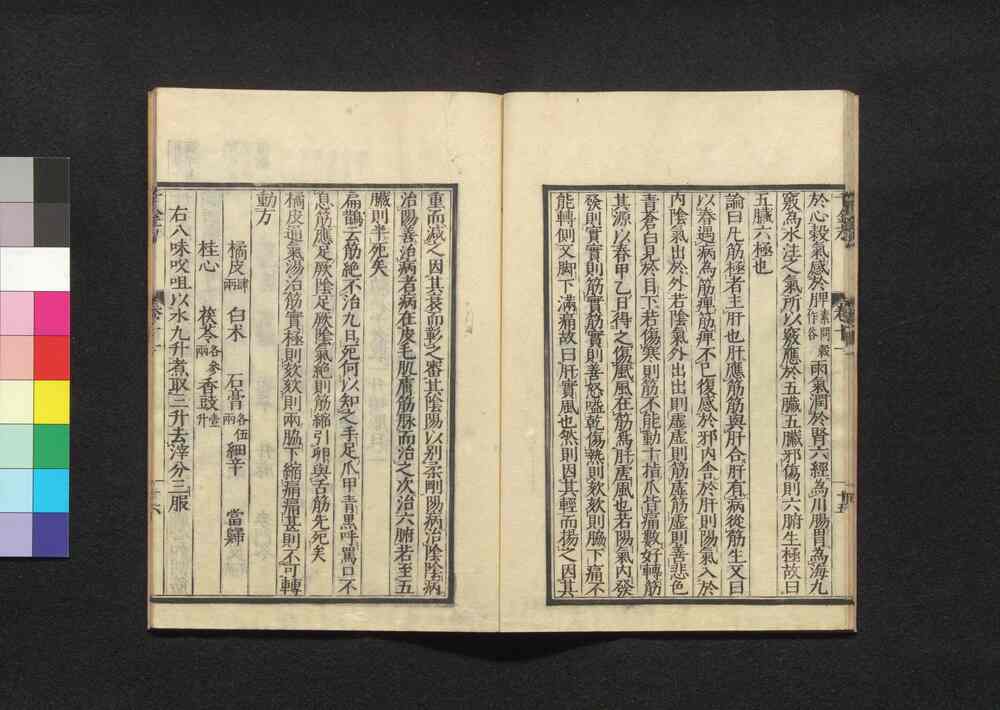 於心穀氣感於脾素問穀作谷雨氣潤於腎六經為川腸胃為海九
竅為水注之氣所以竅應於五臟五臟邪傷則六腑生極故曰
五臟六極也
論曰凡筋極者主肝也肝應筋筋與肝合肝有病從筋生又曰
以春遇病為筋痺筋痺不已復感於邪内舍於肝則陽氣入於
内陰氣出於外若陰氣外出出則虛虛則筋虛筋虛則善悲色
青蒼白見於目下若傷寒則筋不能動十指爪皆痛數好轉筋
其源以春甲乙日得之傷風風在筋為肝虛風也若陽氣内發
發則實實則筋實筋實則善怒嗌乾傷熱則欬欬則脇下痛不
能轉側又脚下滿痛故曰肝實風也然則因其輕而揚之因其
重而減之因其衰而彰之審其陰陽以別柔剛陽病治陰陰病
治陽善治病者病在皮毛肌膚筋脉而治之次治六腑若至五
臟則半死矣
扁鵲云筋絶不治九日死何以知之手足爪甲青黑呼罵口不
息筋應足厥陰足厥陰氣絶則筋縮引卵與舌筋先死矣
橘皮通氣湯治筋實極則欬欬則兩脇下縮痛痛甚則不可轉
動方
橘皮肆兩 白术 石膏各伍兩 細辛 當歸
桂心 茯苓各參兩 香豉壹升
右八味㕮咀以水九升煮取三升去滓分三服